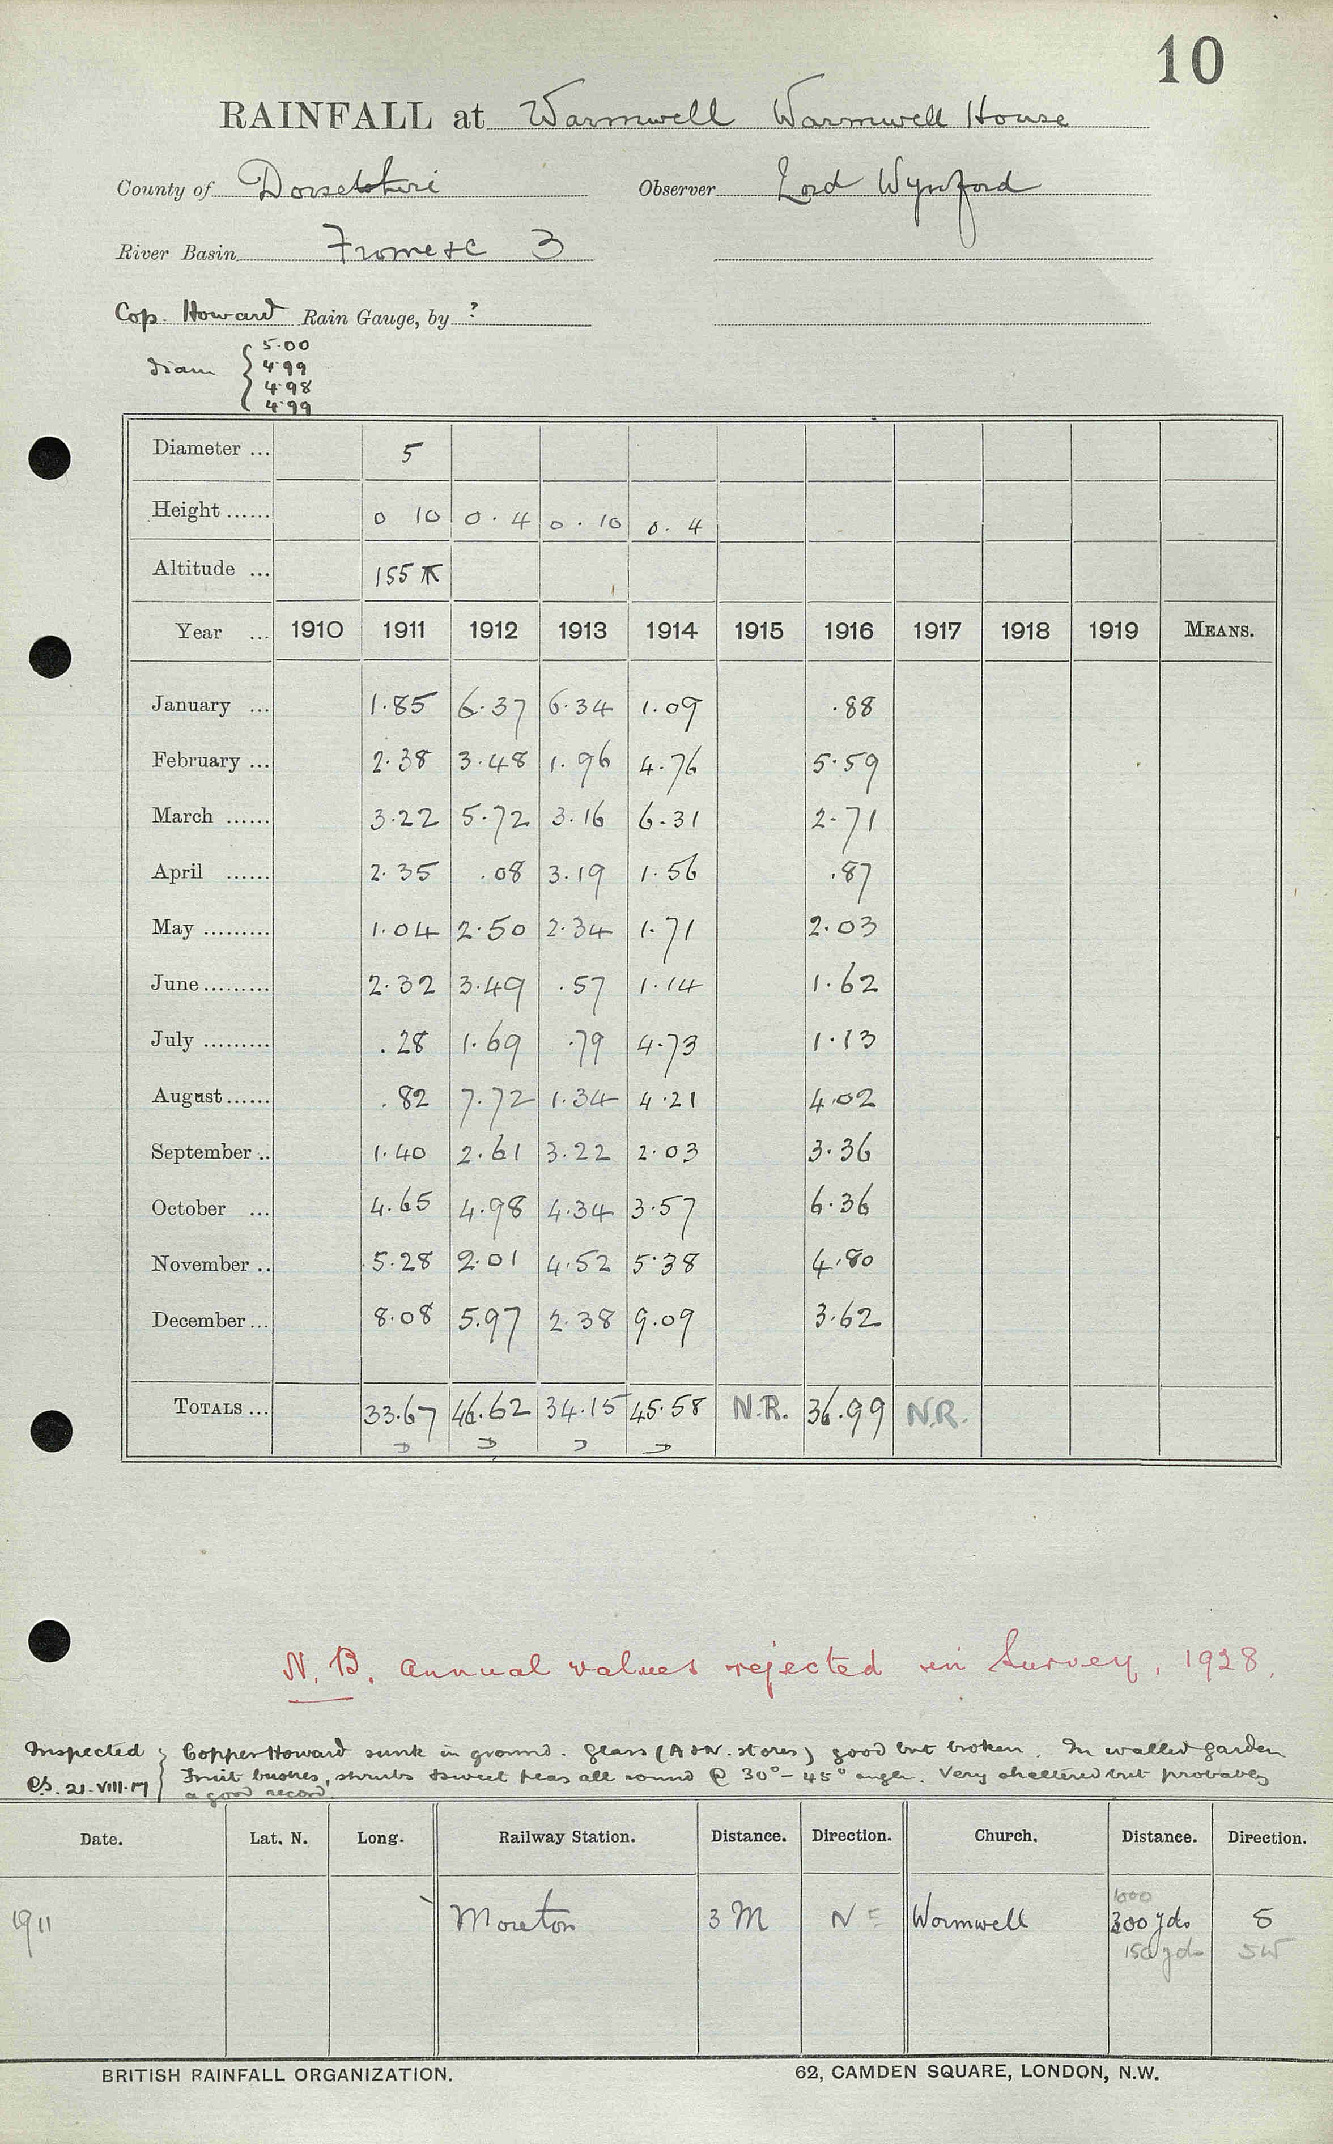 10
RAINFALL at Warmwell Warmwell House
County of Dorsetshire Observer Lord Wynford
River Basin Frome &c 3
Cop. Howard Rain Gauge, by ?
diam { 5.00
4.99
4.98
4.99
Diameter ... 5
Height ...... 0 10 0.4 0.10 0.4
Altitude ... 155
Year ... 1910 1911 1912 1913 1914 1915 1916 1917 1918 1919 MEANS.
January ... 1.85 6.37 6.34 1.09 .88
February ... 2.38 3.48 1.96 4.76 5.59
March ...... 3.22 5.72 3.16 6.31 2.71
April ...... 2.35 .08 3.19 1.56 .87
May ......... 1.04 2.50 2.34 1.71 2.03
June ......... 2.32 3.49 .57 1.14 1.62
July ......... .28 1.69 .79 4.73 1.13
August ...... .82 7.72 1.34 4.21 4.02
September .. 1.40 2.61 3.22 2.03 3.36
October ... 4.65 4.98 4.34 3.57 6.36
November .. 5.28 2.01 4.52 5.38 4.80
December ... 8.08 5.97 2.38 9.09 3.62
TOTALS ... 33.67 46.62 34.15 45.58 N.R. 36.99 N.R.
N.B. Annual values rejected in Survey, 1928.
Inspected } Copper Howard sunk in ground. Glass (A & N. stores) good but broken. In walled garden
21.VIII.17 } Fruit bushes, shrubs & sweet peas all round @ 30°-45° angle. Very sheltered but probably
a good record.
Date. Lat. N. Long. Railway Station. Distance. Direction. Church. Distance. Direction.
600
1911 Moreton 3 M NE Warmwell 300 yds S
150 yds SW
BRITISH RAINFALL ORGANIZATION. 62, CAMDEN SQUARE, LONDON, N.W.